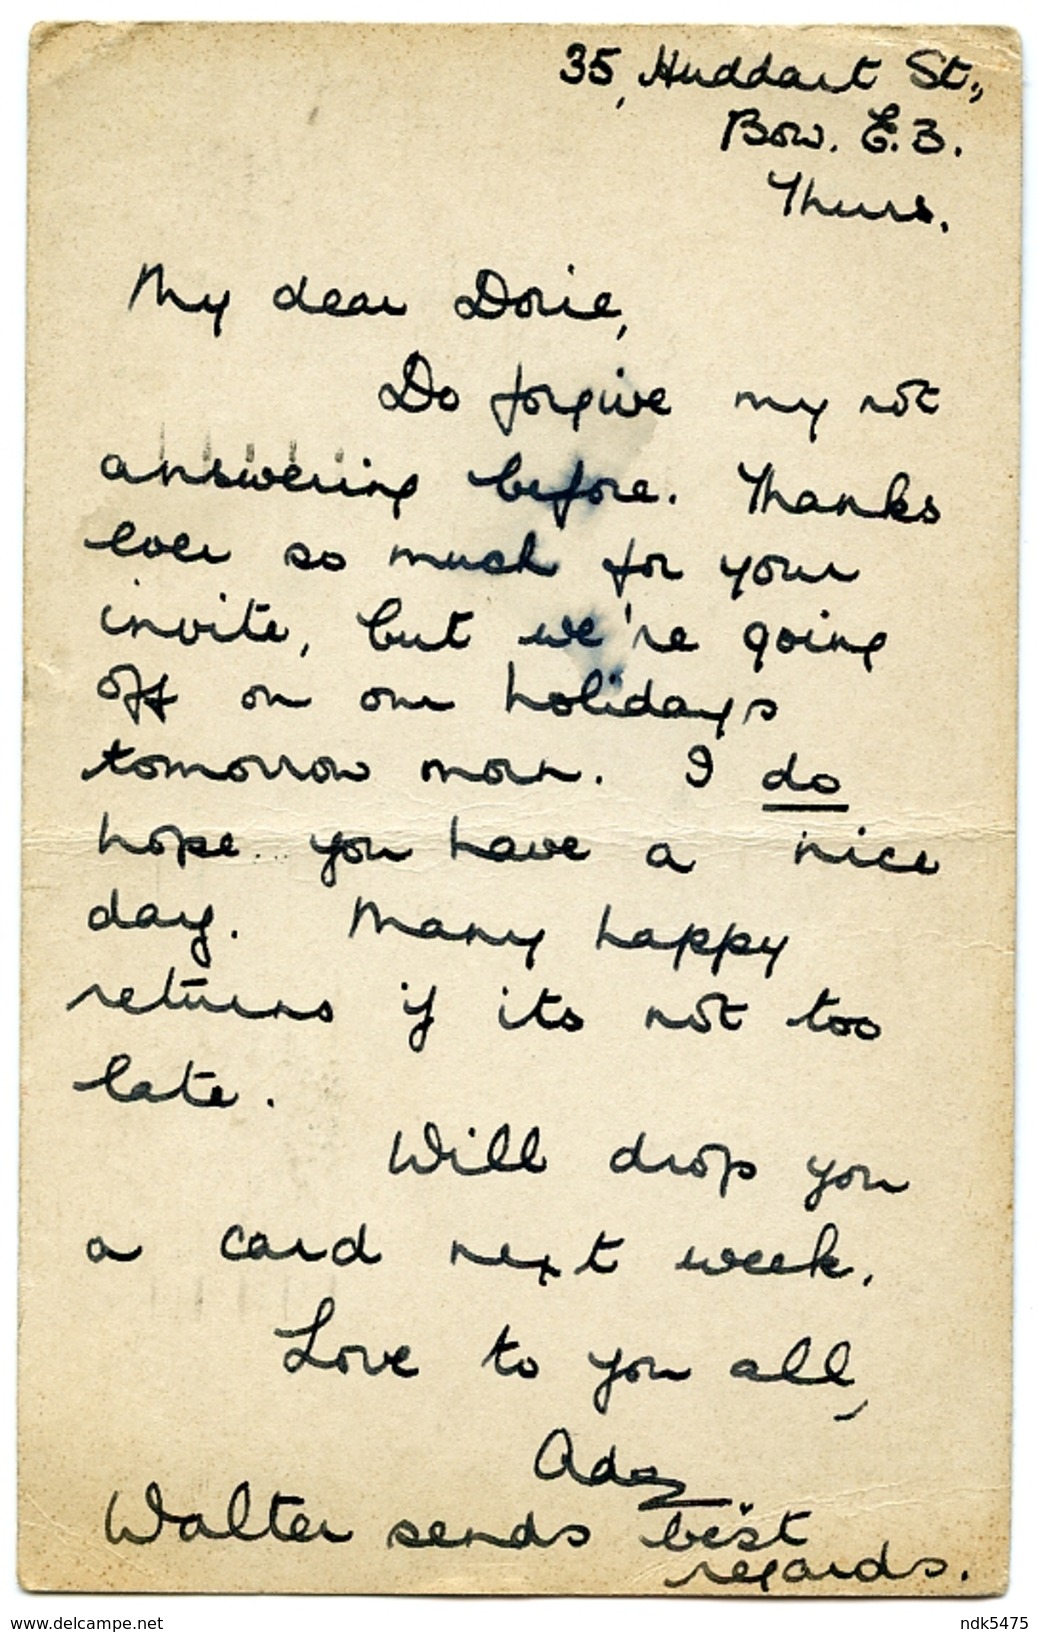 35, Huddart St.,
Bow. E.3.
Thurs.
My dear Dorie,
Do forgive my not
answering before. Thanks
ever so much for your
invite, but we're going
off on our holidays
tomorrow morn. I do
hope you have a nice
day. Many happy
returns if its not too
late.
Will drop you
a card next week.
Love to you all,
Ada
Walter sends best
regards.
www.delcampe.net
ndk5475